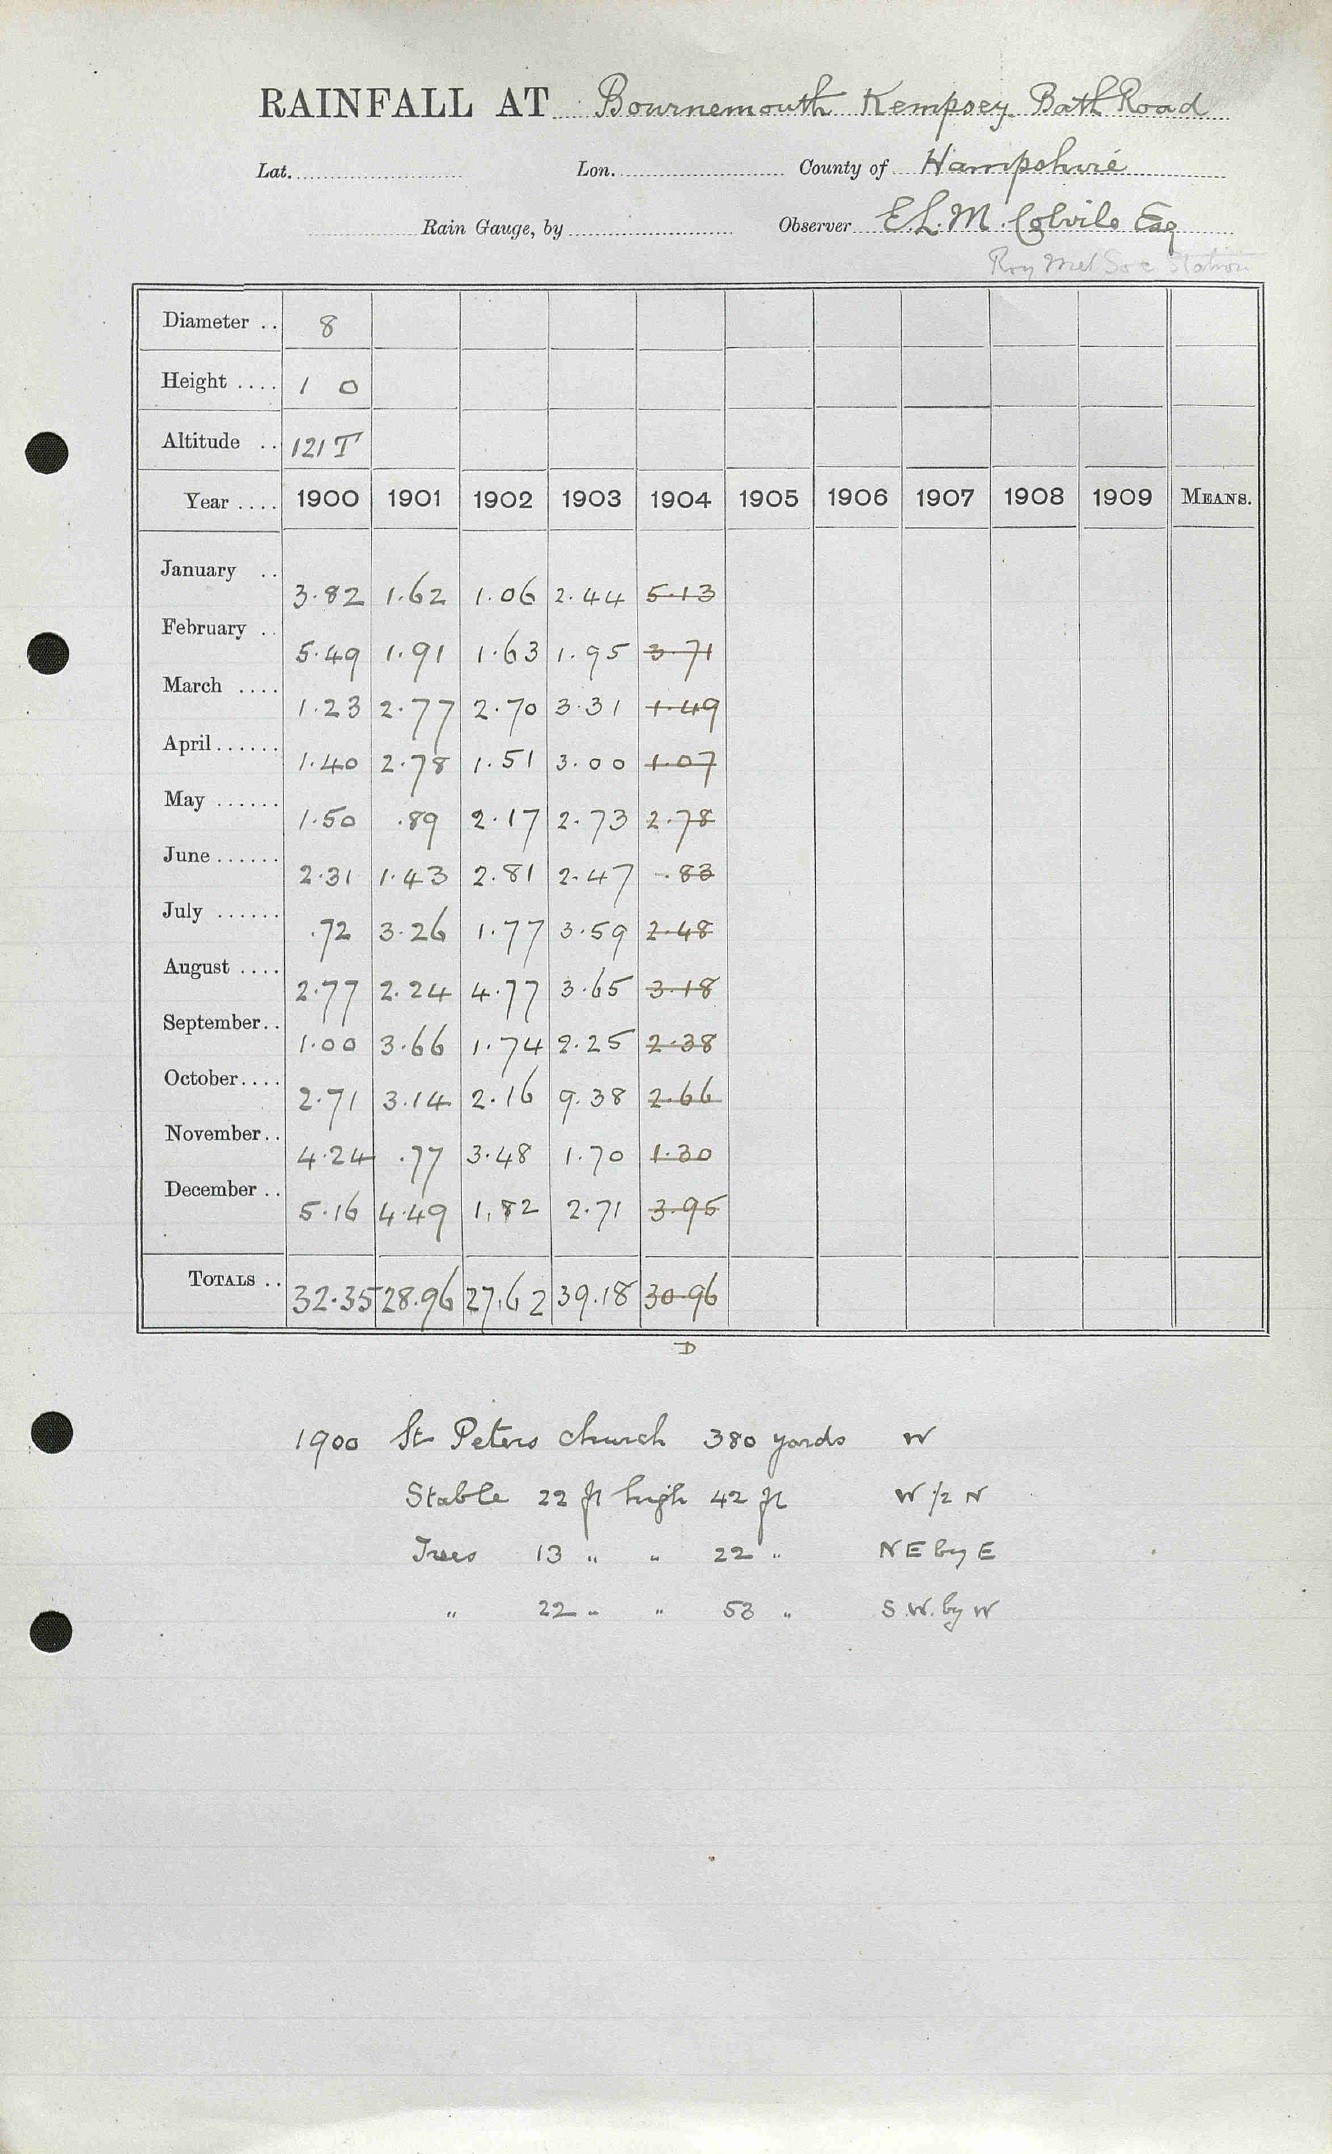 RAINFALL AT Bournemouth Kempsey Bath Road
Lat. Lon. County of Hampshire
Rain Gauge, by Observer E.L.M. Colvile Esq
Roy Met Soc Station
Diameter .. 8
Height .... 1 0
Altitude .. 121 T
Year .... 1900 1901 1902 1903 1904 1905 1906 1907 1908 1909 MEANS.
January .. 3.82 1.62 1.06 2.44 5.13
February .. 5.49 1.91 1.63 1.95 3.71
March .... 1.23 2.77 2.70 3.31 1.49
April ...... 1.40 2.78 1.51 3.00 1.07
May ...... 1.50 .89 2.17 2.73 2.78
June ...... 2.31 1.43 2.81 2.47 .83
July ...... .72 3.26 1.77 3.59 2.48
August .... 2.77 2.24 4.77 3.65 3.18
September.. 1.00 3.66 1.74 2.25 2.38
October.... 2.71 3.14 2.16 9.38 2.66
November.. 4.24 .77 3.48 1.70 1.30
December .. 5.16 4.49 1.82 2.71 3.95
TOTALS .. 32.35 28.96 27.62 39.18 30.96
D
1900 St Peters church 380 yards W
Stable 22 ft high 42 ft W 1/2 N
Trees 13 " " 22 " N E by E
" 22 " " 53 " S.W. by W